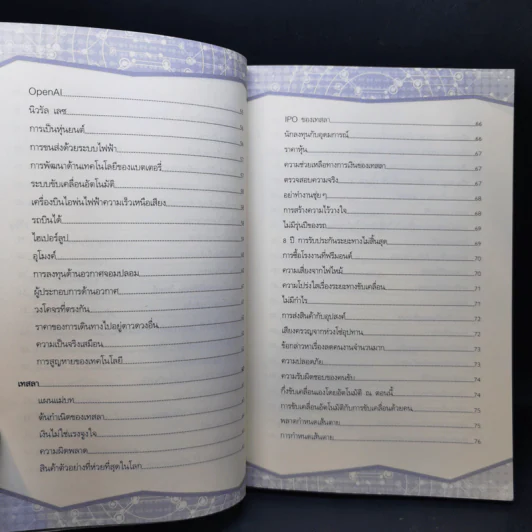 OpenAI
นิวรัล เลซ
การเป็นหุ่นยนต์
การขนส่งด้วยระบบไฟฟ้า
การพัฒนาด้านเทคโนโลยีของแบตเตอรี่
ระบบขับเคลื่อนอัตโนมัติ
เครื่องบินไอพ่นไฟฟ้าความเร็วเหนือเสียง
รถบินได้
ไฮเปอร์ลูป
อุโมงค์
การลงทุนด้านอวกาศจอมปลอม
ผู้ประกอบการด้านอวกาศ
วงโคจรที่ตรงกัน
ราคาของการเดินทางไปอยู่ดาวดวงอื่น
ความเป็นจริงเสมือน
การสูญหายของเทคโนโลยี
เทสลา
แผนแม่บท
ต้นกำเนิดของเทสลา
เงินไม่ใช่แรงจูงใจ
ความผิดพลาด
สินค้าตัวอย่างที่ห่วยที่สุดในโลก
IPO ของเทสลา 66
นักลงทุนกับอุดมการณ์ 66
ราคาหุ้น 67
ความช่วยเหลือทางการเงินของเทสลา 67
ตรวจสอบความจริง 67
อย่าทำงานชุ่ยๆ 68
การสร้างความไว้วางใจ 68
ไม่มีรุ่นปีของรถ 69
8 ปี การรับประกันระยะทางไม่สิ้นสุด 69
การซื้อโรงงานที่ฟรีมอนต์ 70
ความเสี่ยงจากไฟไหม้ 70
ความโปร่งใสเรื่องระยะทางขับเคลื่อน 71
ไม่มีกำไร 71
การส่งสินค้ากับอุปสงค์ 71
เสียงครวญจากห่วงโซ่อุปทาน 72
ข้อกล่าวหาเรื่องลดคนงานจำนวนมาก 73
ความปลอดภัย 73
ความรับผิดชอบของคนขับ 74
กึ่งขับเคลื่อนเองโดยอัตโนมัติ ณ ตอนนี้ 74
การขับเคลื่อนอัตโนมัติกับการขับเคลื่อนด้วยคน 75
พลาดกำหนดเส้นตาย 75
การกำหนดเส้นตาย 76